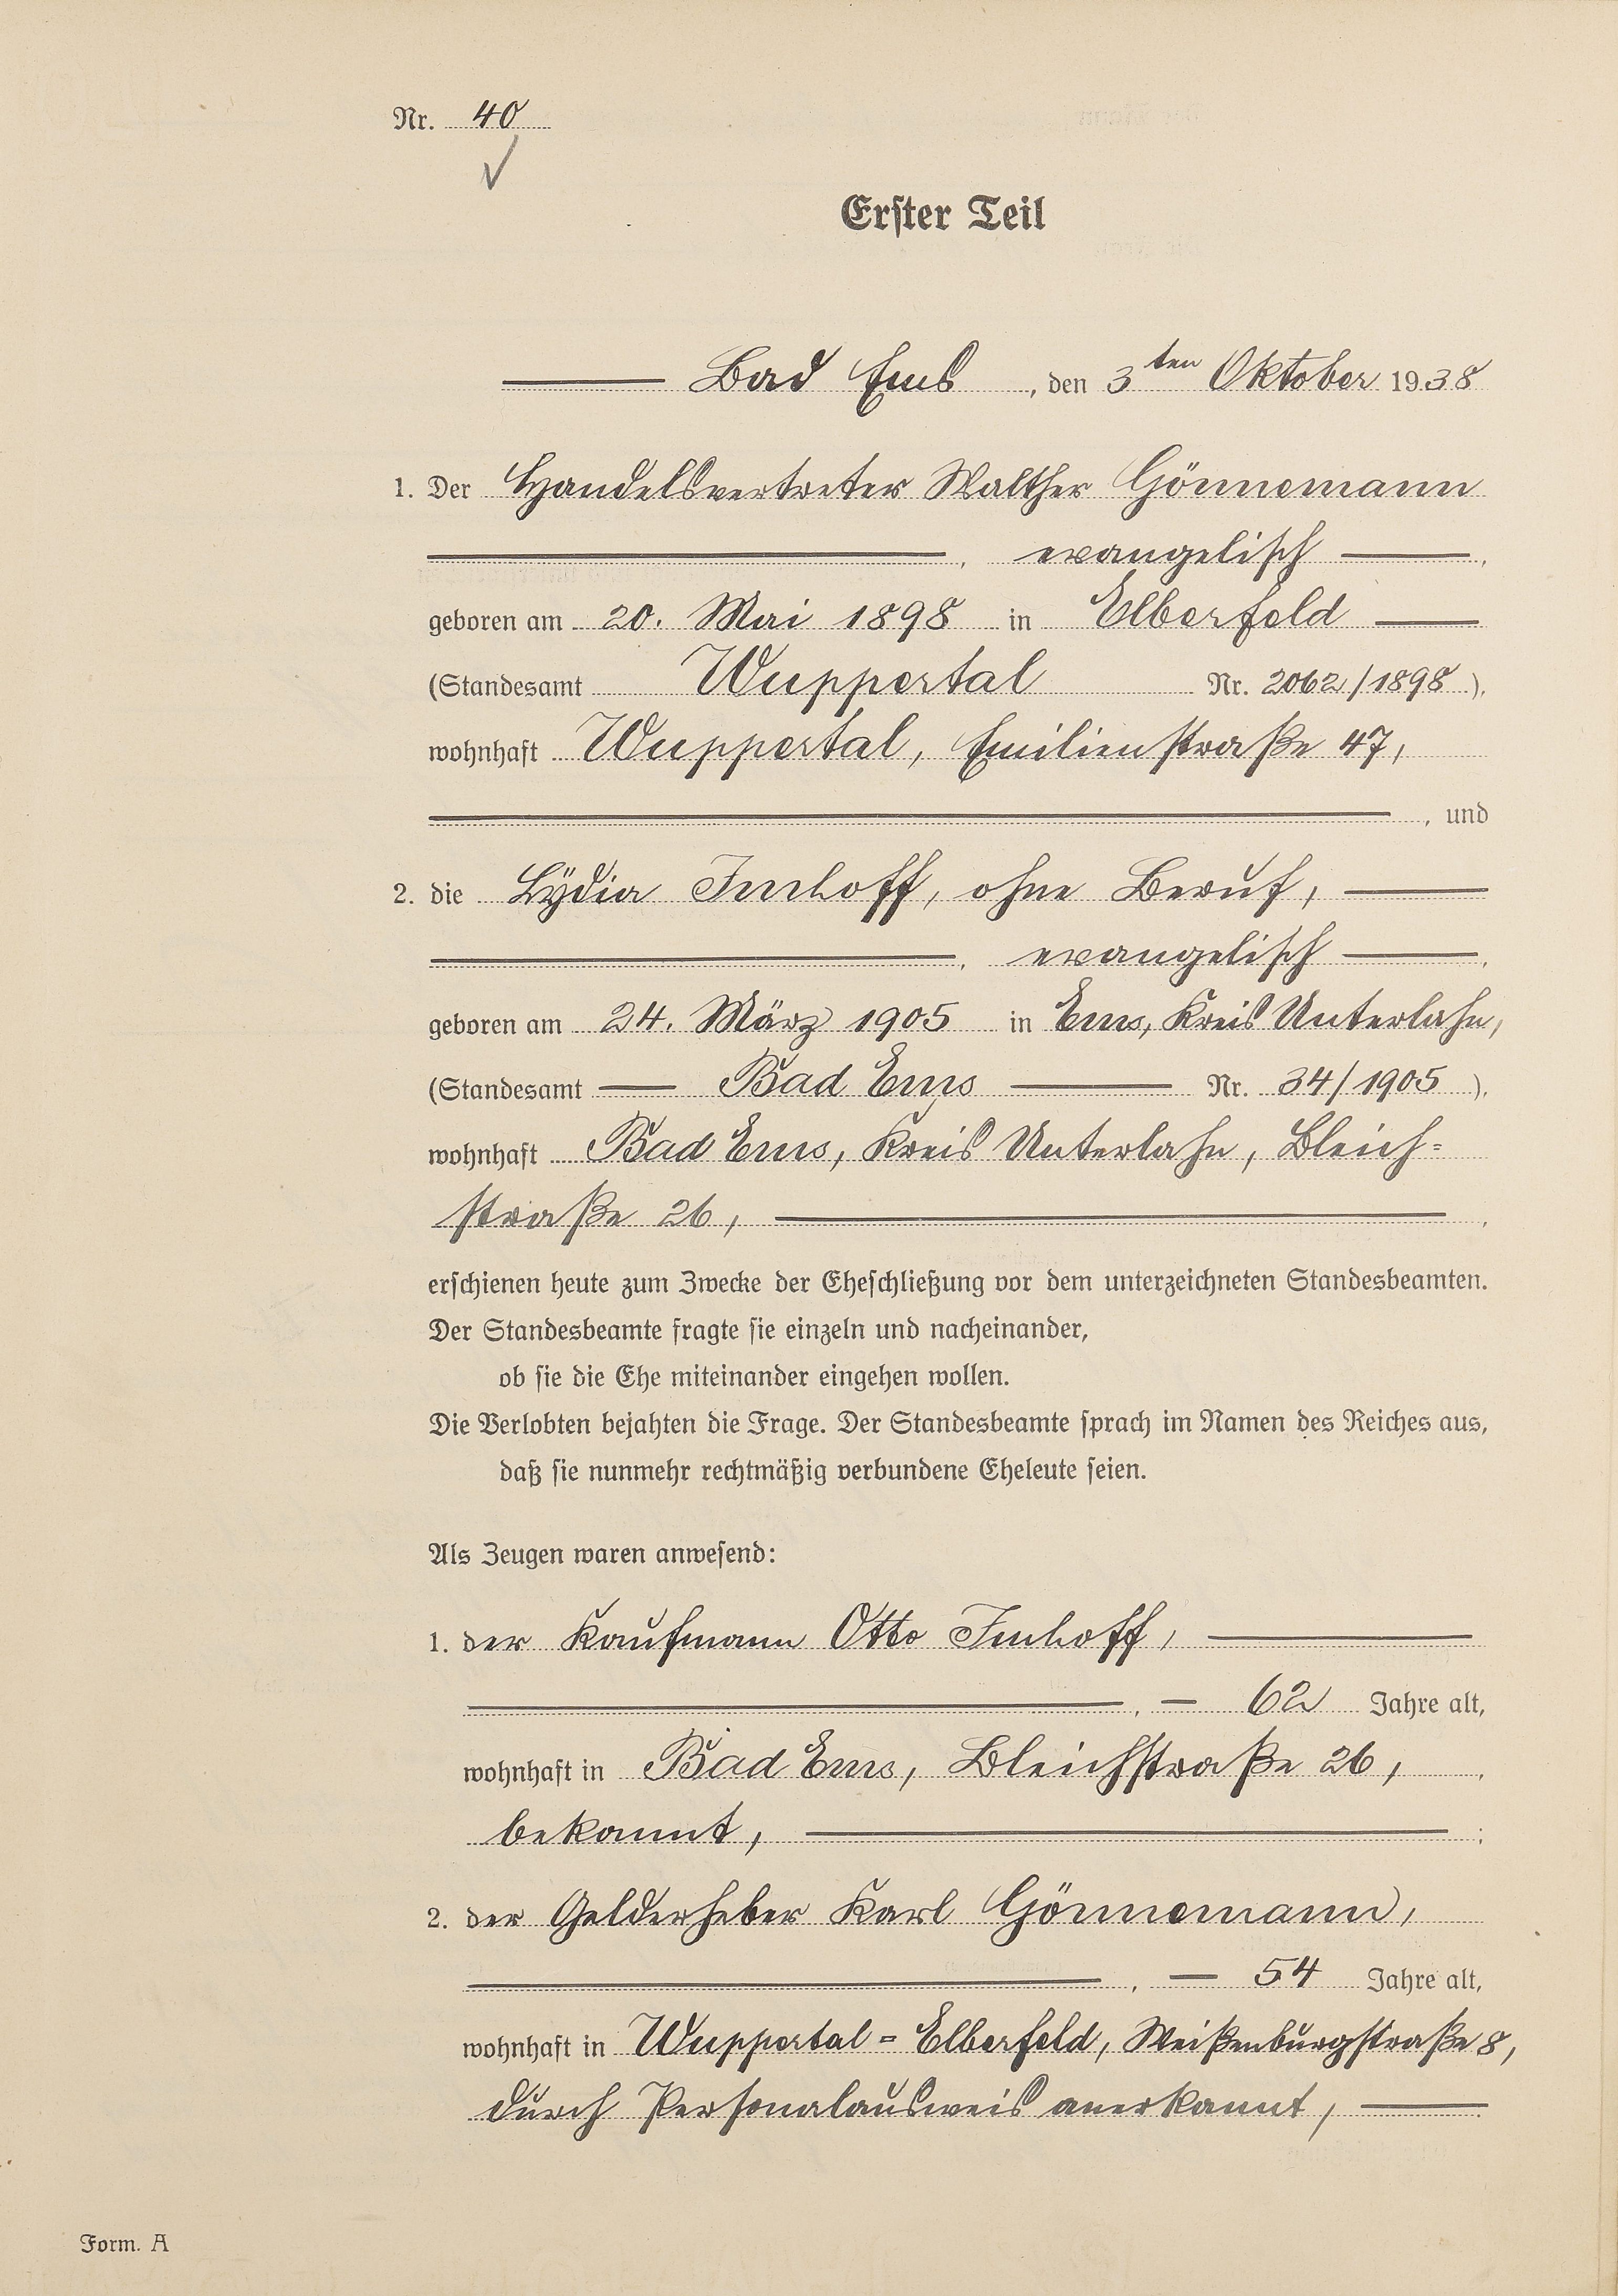 Nr. 40
Erster Teil
Bad Ems, den 3ten Oktober 1938
1. Der Handelsvertreter Walther Gönnemann
, evangelisch ,
geboren am 20. Mai 1898 in Elberfeld
(Standesamt Wuppertal Nr. 2062/1898 ),
wohnhaft Wuppertal, Emilienstraße 47,
, und
2. die Lÿdia Imhoff, ohne Beruf,
, evangelisch ,
geboren am 24. März 1905 in Ems, Kreis Unterlahn,
(Standesamt Bad Ems Nr. 34/1905 ),
wohnhaft Bad Ems, Kreis Unterlahn, Bleich=
straße 26, ,
erschienen heute zum Zwecke der Eheschließung vor dem unterzeichneten Standesbeamten.
Der Standesbeamte fragte sie einzeln und nacheinander,
ob sie die Ehe miteinander eingehen wollen.
Die Verlobten bejahten die Frage. Der Standesbeamte sprach im Namen des Reiches aus,
daß sie nunmehr rechtmäßig verbundene Eheleute seien.
Als Zeugen waren anwesend:
1. der Kaufmann Otto Imhoff,
, — 62 Jahre alt,
wohnhaft in Bad Ems, Bleichstraße 26, ,
bekannt, ;
2. der Gelderheber Karl Gönnemann,
, — 54 Jahre alt,
wohnhaft in Wuppertal=Elberfeld, Weißenburgstraße 8,
durch Personalausweis anerkannt,
Form. A